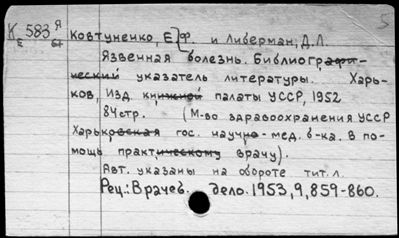 К 583 Я
Е 61
5
Ковтуненко, Е.Ф. и Либерман, Д.Л.
Язвенная болезнь. Библиографи-
ческий указатель литературы. Харь-
ков, Изд. книжной палаты УССР, 1952
84 стр. (М-во здравоохранения УССР
Харьковская гос. научно-мед. б-ка. В по-
мощь практическому врачу).
Авт. указаны на обороте тит. л.
Рец.: Врачев. дело. 1953, 9, 859-860.